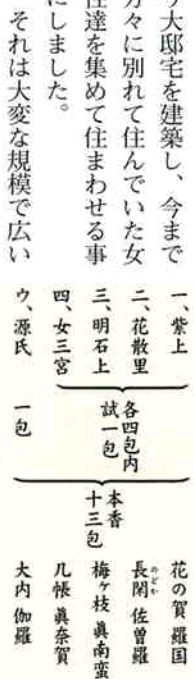 大邸宅を建築し、今まで
方々に別れて住んでいた女
性達を集めて住まわせる事
にしました。
それは大変な規模で広い
一、紫上
二、花散里
三、明石上
四、女三宮
ウ、源氏
各四包内
試一包
一包
本香
十三包
花の賀 羅国
長閑 佐曽羅
のどか
梅ヶ枝 眞南蛮
几帳 眞奈賀
大内 伽羅